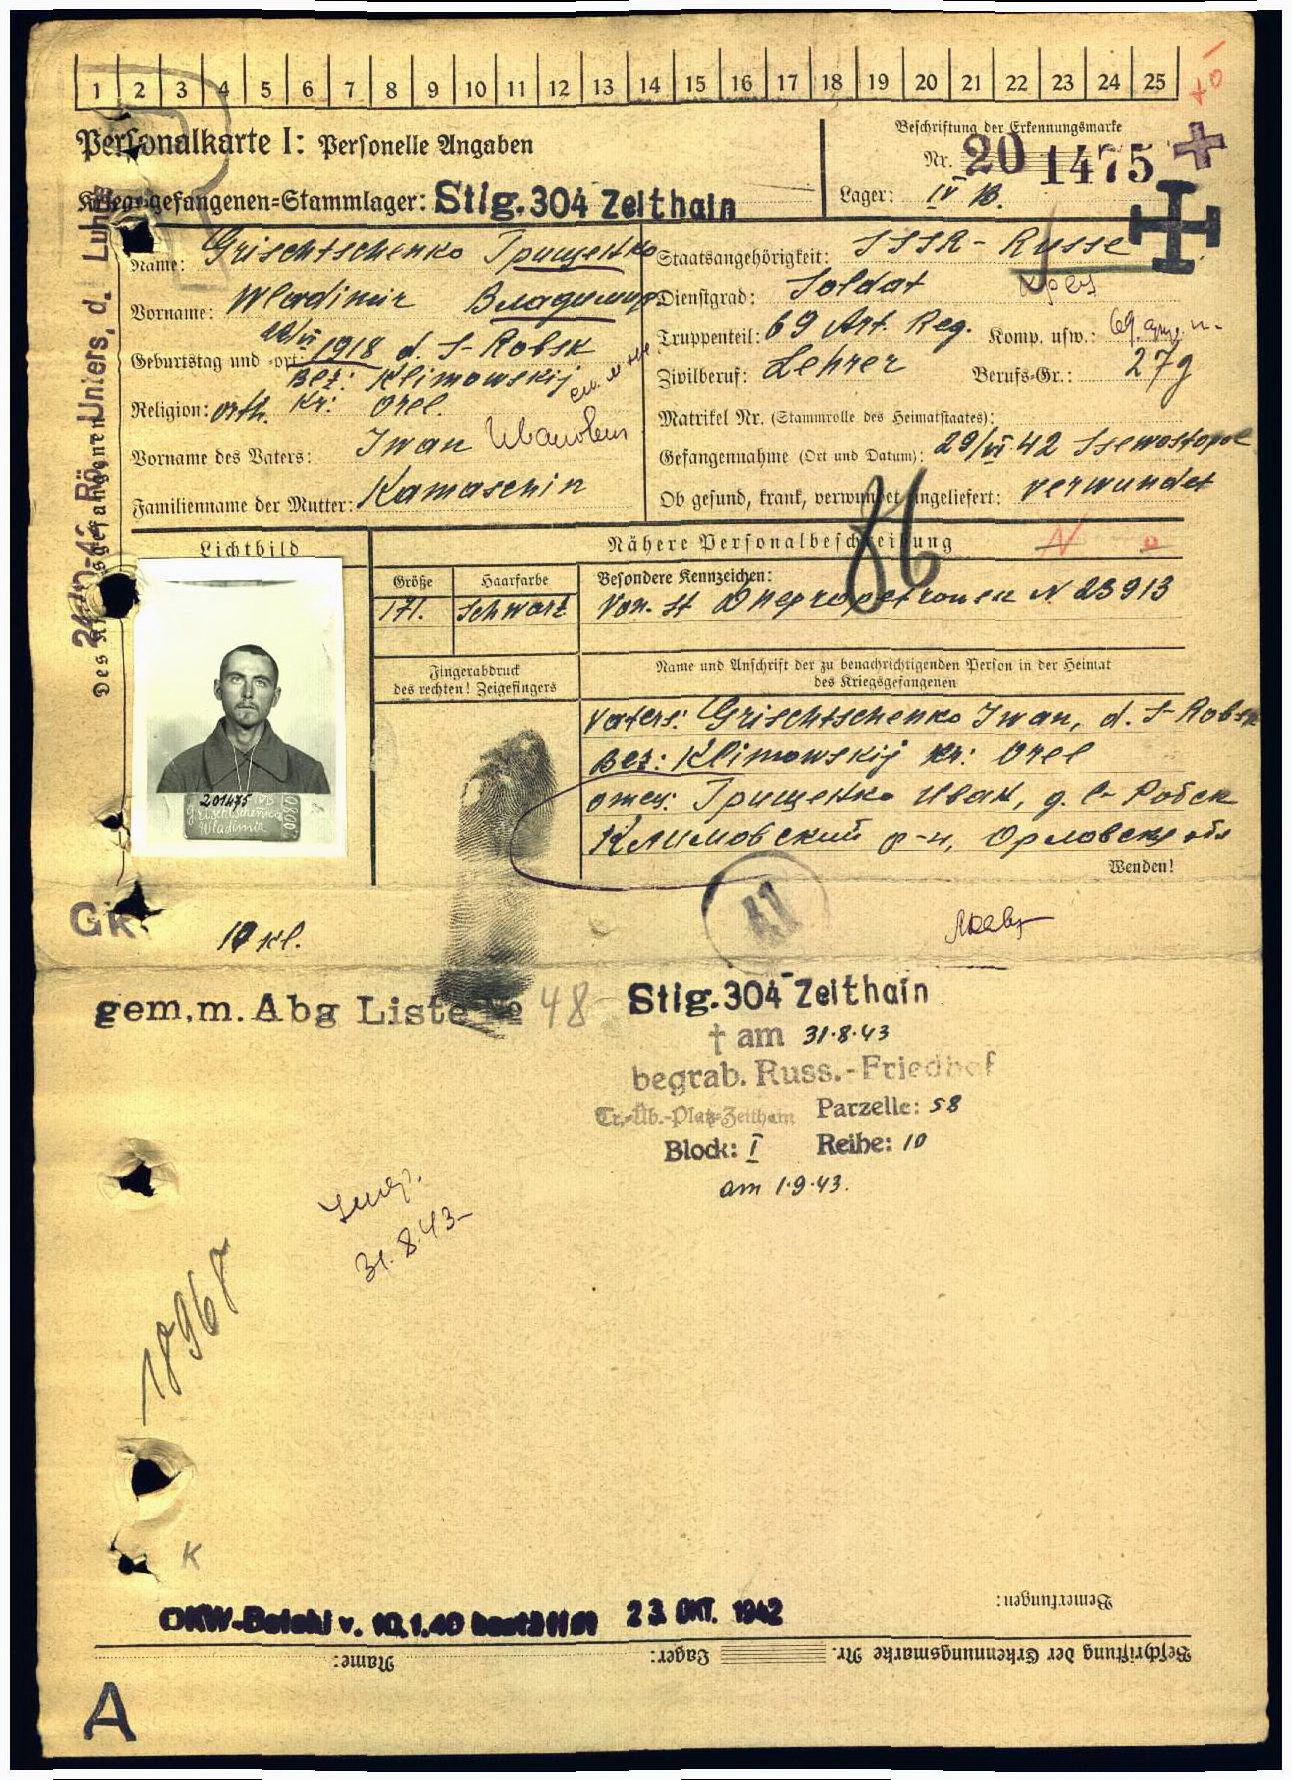 1 2 3 4 5 6 7 8 9 10 11 12 13 14 15 16 17 18 19 20 21 22 23 24 25
Personalkarte I: Personelle Angaben
Kriegsgefangenen=Stammlager: Stlg. 304 Zeithain
Beschriftung der Erkennungsmarke
Nr. 201475
Lager: IV B.
Name: Grischtschenko Грищенко
Vorname: Wladimir Владимир
Geburtstag und -ort: 1918 d. S-Robsk
Bez: Klimowskij
Religion: orth. Kr: Orel.
Vorname des Vaters: Iwan Иванович
Familienname der Mutter: Kamaschin
Staatsangehörigkeit: SSSR - Russe
Dienstgrad: Soldat
Truppenteil: 69 Art. Reg. Komp. usw.:
Zivilberuf: Lehrer Berufs-Gr.: 27g
Matrikel Nr. (Stammrolle des Heimatstaates):
Gefangennahme (Ort und Datum): 29/VI 42 Ssewostopol
Ob gesund, krank, verwundet eingeliefert: verwundet
Des Kriegsgefangenen Unters. d.
Lichtbild
Nähere Personalbeschreibung
86
Größe
171.
Haarfarbe
Schwarz
Besondere Kennzeichen:
Von. St Dnepropetrowsk N 23913
Fingerabdruck
des rechten! Zeigefingers
Name und Anschrift der zu benachrichtigenden Person in der Heimat
des Kriegsgefangenen
Vaters: Grischtschenko Iwan, d. S-Robsk
Bez: Klimowskij Kr: Orel
отец: Грищенко Иван, д. С-Робск
Климовский р-н, Орловск обл
Wenden!
201475
Grischtschenko
Wladimir
GK
10 kl.
41
gem. m. Abg Liste № 48
Stlg. 304 Zeithain
† am 31.8.43
begrab. Russ.-Friedhof
Tr.-Üb.-Platz-Zeithain Parzelle: 58
Block: I Reihe: 10
am 1.9.43.
31.8.43
18967
K
Bemerkungen:
OKW-Befehl v. 10.1.40 bestätigt 23. OKT. 1942
Beschriftung der Erkennungsmarke Nr. Lager: Name:
A